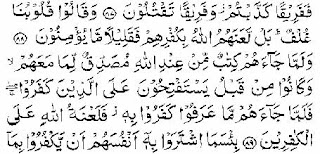 فَفَرِيقًا كَذَّبْتُمْ وَفَرِيقًا تَقْتُلُونَ ﴿٨٧﴾ وَقَالُوا قُلُوبُنَا
غُلْفٌ ۚ بَل لَّعَنَهُمُ اللَّهُ بِكُفْرِهِمْ فَقَلِيلًا مَّا يُؤْمِنُونَ ﴿٨٨﴾
وَلَمَّا جَاءَهُمْ كِتَابٌ مِّنْ عِندِ اللَّهِ مُصَدِّقٌ لِّمَا مَعَهُمْ
وَكَانُوا مِن قَبْلُ يَسْتَفْتِحُونَ عَلَى الَّذِينَ كَفَرُوا
فَلَمَّا جَاءَهُم مَّا عَرَفُوا كَفَرُوا بِهِ ۚ فَلَعْنَةُ اللَّهِ عَلَى
الْكَافِرِينَ ﴿٨٩﴾ بِئْسَمَا اشْتَرَوْا بِهِ أَنفُسَهُمْ أَن يَكْفُرُوا بِمَا